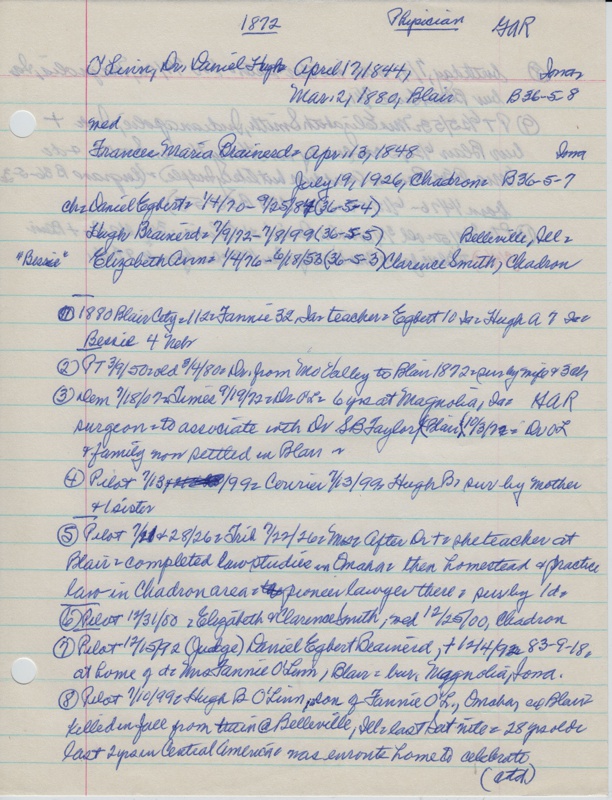 1872 Physician GAR
O'Linn, Dr. Daniel Hugh April 17, 1844, Iowa
Mar. 2, 1880, Blair B36-5-8
med
Frances Maria Brainerd = Apri. 13, 1848 Iowa
July 19, 1926, Chadron = B36-5-7
ch = Daniel Egbert = 1/4/70 - 9/25/84 (36-5-4)
Hugh Brainerd = 7/9/72 - 7/8/99 (36-5-5) Belleville, Ill =
"Bessie" Elizabeth Ann = 1/4/76 - 6/18/53 (36-5-3) Clarence Smith, Chadron
① 1880 Blair City = 112 = Fannie 32, Ia = teacher = Egbert 10 Ia = Hugh A 7 Ia =
Bessie 4 Neb
② PT 3/9/50 = od 3/4/80 = Dr. from Mo Valley to Blair 1872 = sur by wife & 3 ch
③ Dem 7/18/07 = Times 9/19/72 = Dr O'L = 6 yrs at Magnolia, Ia = GAR
surgeon = to associate with Dr S.B. Taylor, (Blair) 10/3/72 = Dr O'L
& family now settled in Blair =
④ Pilot 7/13/99 = Courier 7/13/99 = Hugh B = sur by mother
& 1 sister
⑤ Pilot 7/21 & 28/26 = Trib 7/22/26 = Mrs = After Dr + = she teacher at
Blair = completed law studies in Omaha = then homestead & practice
law in Chadron area = pioneer lawyer there = sur by 1 d =
⑥ Pilot 12/31/50 = Elizabeth & Clarence Smith, med 12/25/00, Chadron
⑦ Pilot 12/15/92 (Judge) Daniel Egbert Brainerd, + 12/4/92 83-9-18,
at home of d = Mrs Fannie O'Linn, Blair = bur, Magnolia, Iowa.
⑧ Pilot 7/10/99 = Hugh B O'Linn, son of Fannie O'L, Omaha, ex Blair =
killed in fall from train @ Belleville, Ill = last Sat nite = 28 yrs old =
last 2 yrs in Central America = was enroute home to celebrate
(ctd)